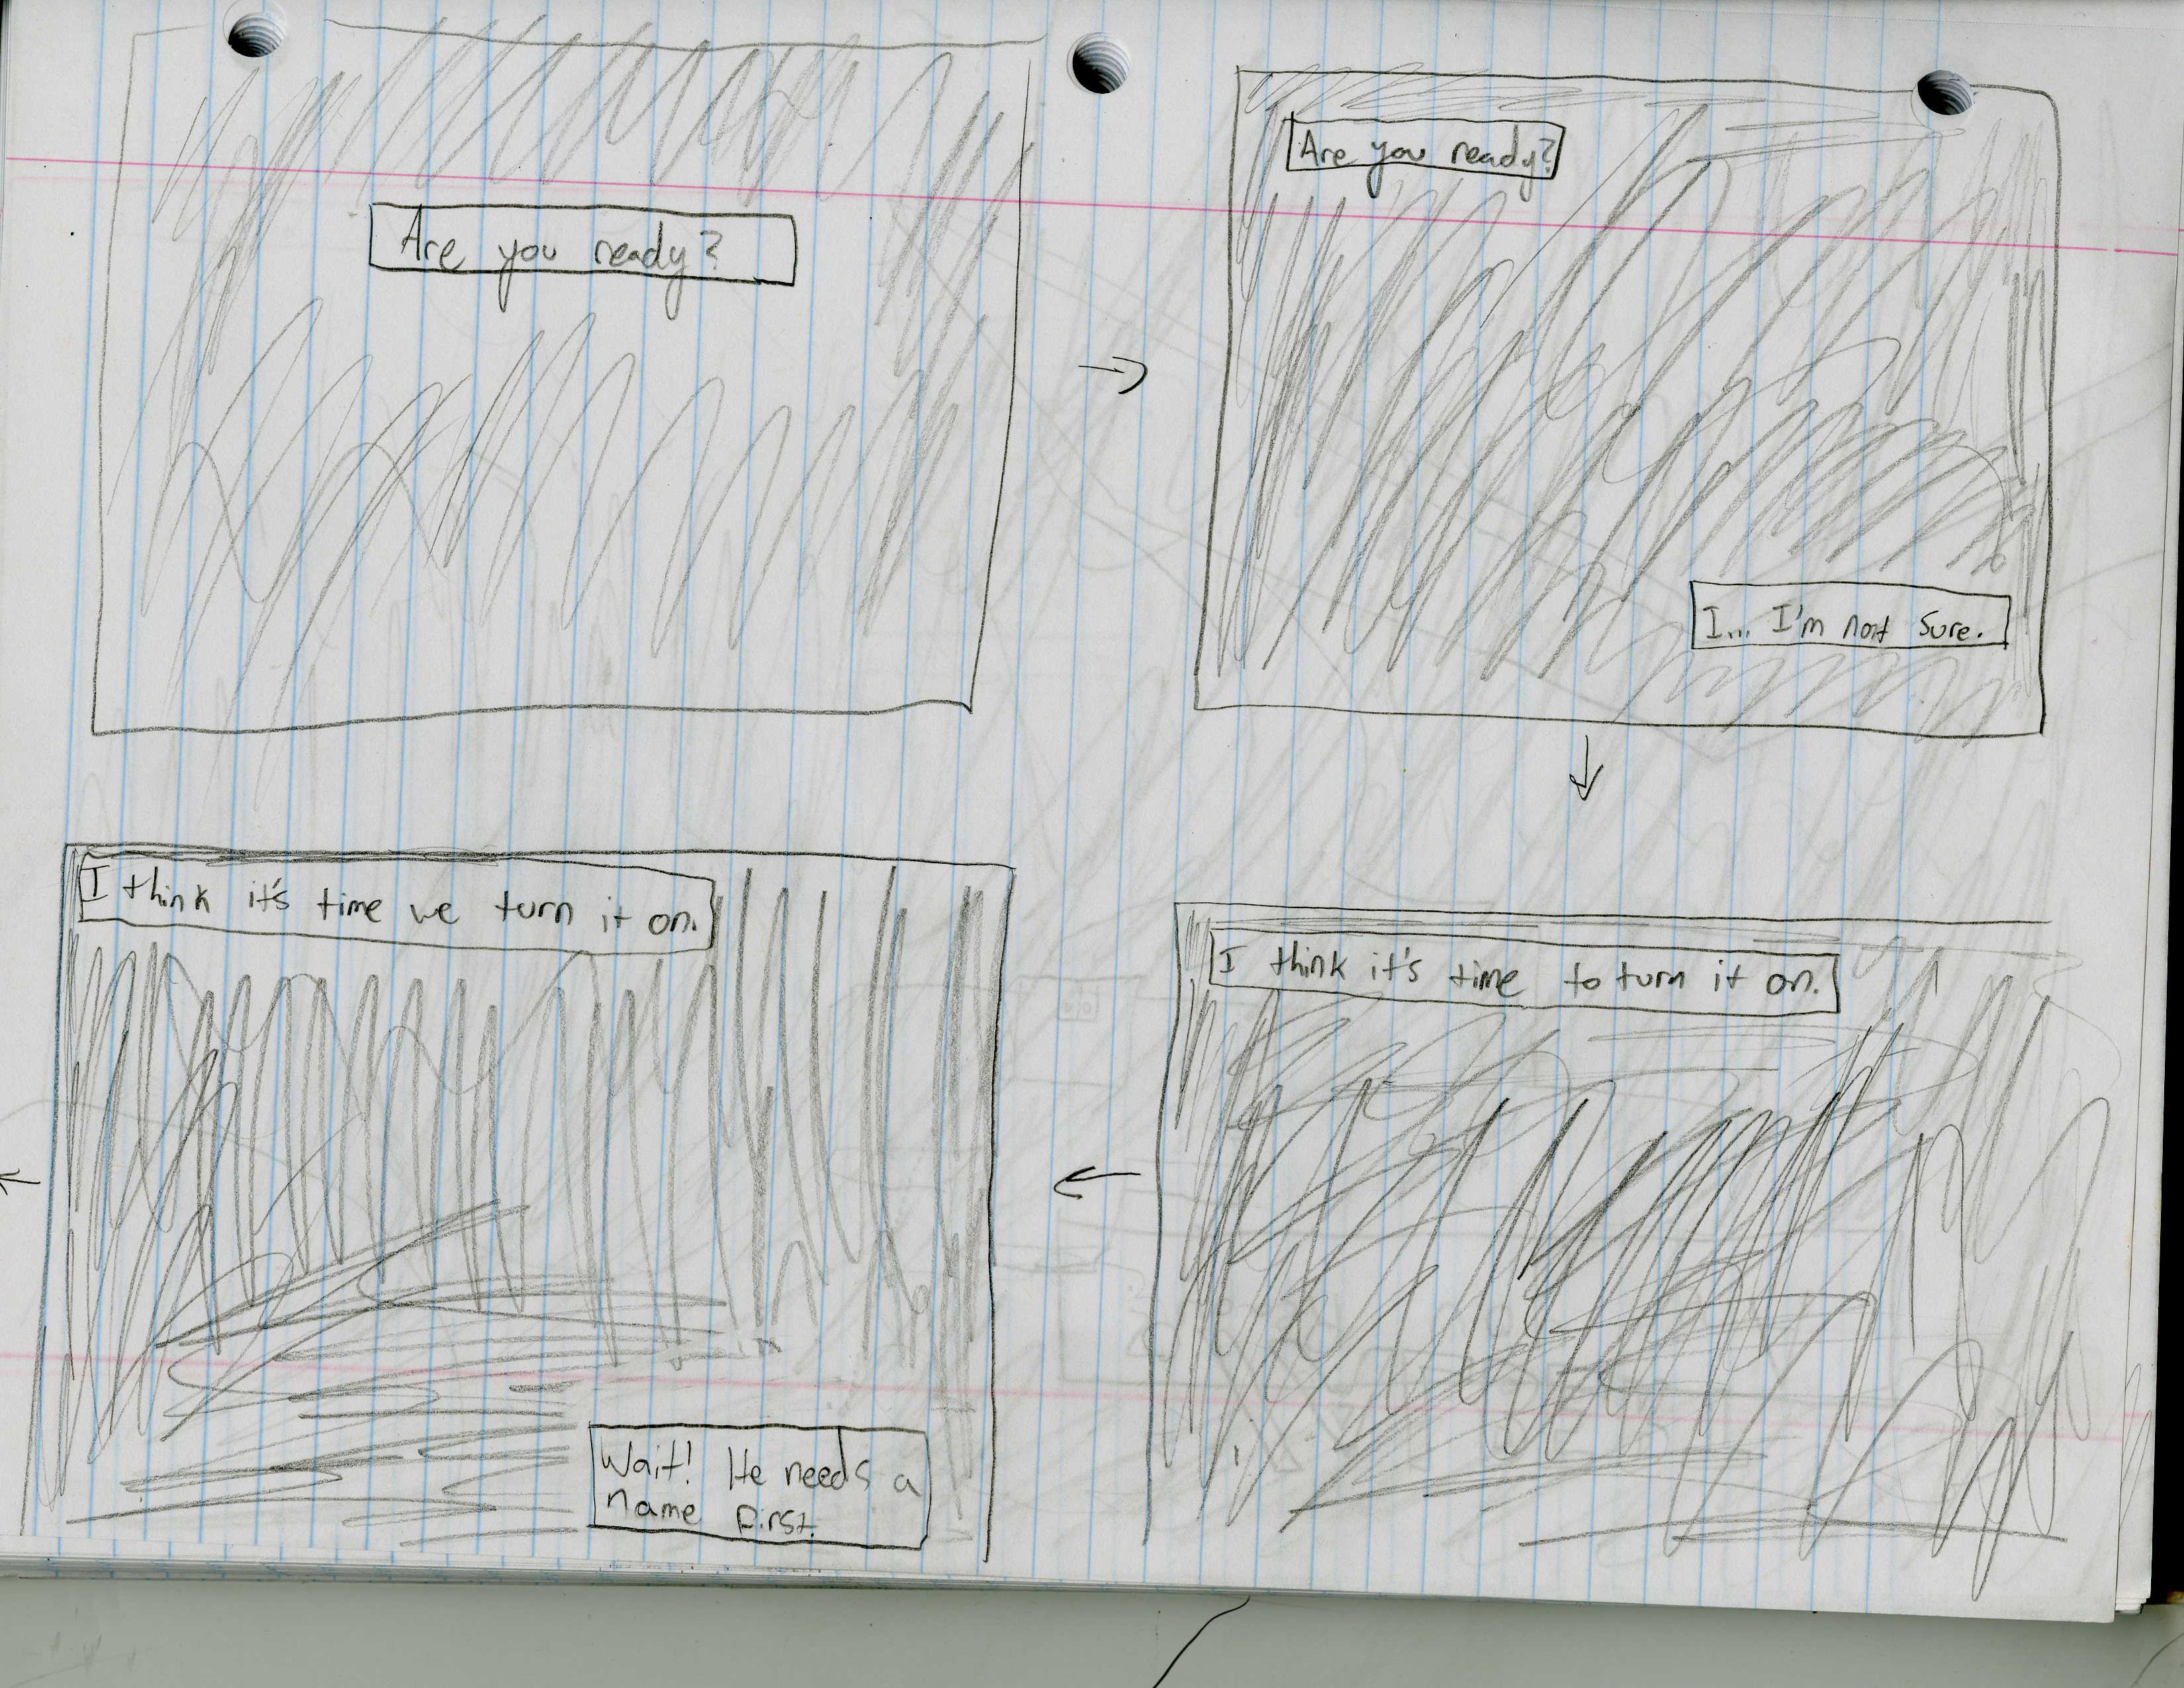 Are you ready?
Are you ready?
I... I'm not sure.
I think it's time to turn it on.
I think it's time we turn it on.
Wait! He needs a
name first.